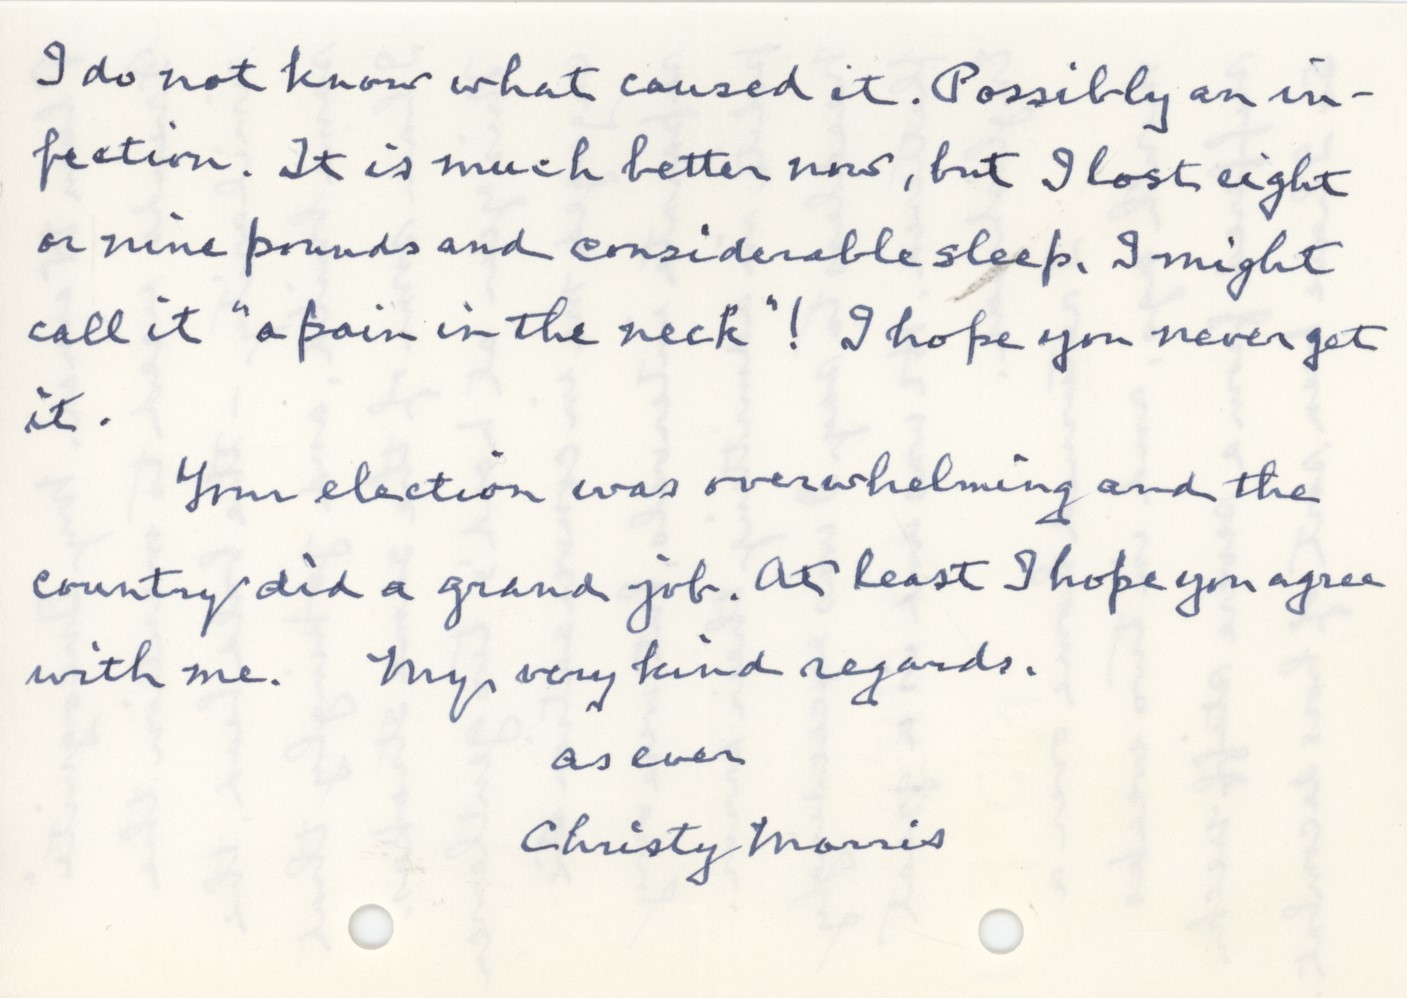 I do not know what caused it. Possibly an in-
fection. It is much better now, but I lost eight
or nine pounds and considerable sleep. I might
call it "a pain in the neck"! I hope you never get
it.
Your election was overwhelming and the
country did a grand job. At least I hope you agree
with me. My, very kind regards.
as ever
Christy Morris